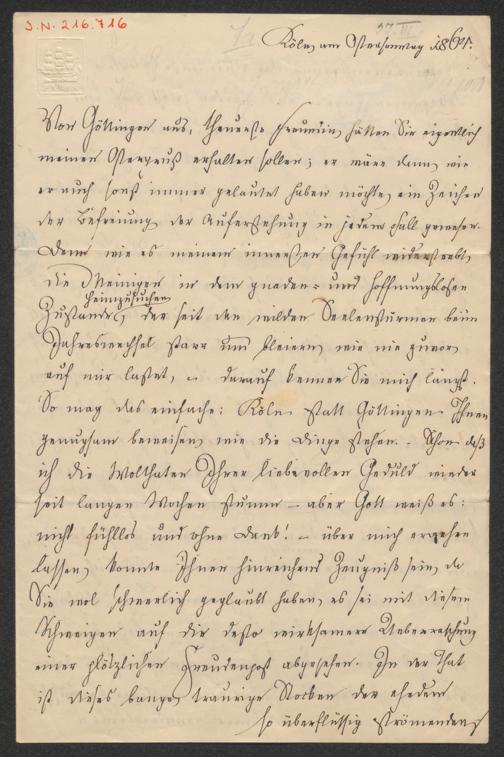 J.N. 216.716
Köln, am Ostersonntag 1864.
Von Göttingen aus, theuerste Freundin, hätten Sie eigentlich
meinen Ostergruß erhalten sollen; er wäre dann, wie
er auch sonst immer gelautet haben möchte, ein Zeichen
der Befreiung, der Auferstehung in jedem Fall gewesen.
Denn wie es meinem innersten Gefühl widerstrebt,
die Meinigen in dem gnaden- und hoffnungslosen
heimzusuchen
Zustande, der seit den wilden Seelenstürmen beim
Jahreswechsel starr und bleiern, wie nie zuvor,
auf mir lastet, – darauf kennen Sie mich längst.
So mag das einfache: Köln statt Göttingen Ihnen
genugsam beweisen, wie die Dinge stehen. – Schon daß
ich die Wolthaten Ihrer liebevollen Geduld wieder
seit langen Wochen stumm – aber Gott weiß es:
nicht fühllos und ohne Dank! – über mich ergehen
lassen, konnte Ihnen hinreichend Zeugniß sein, da
Sie wol schwerlich geglaubt haben, es sei mit diesem
Schweigen auf die desto wirksamere Ueberraschung
einer plötzlichen Freudenpost abgesehen. In der That
ist dieses bange, traurige Stocken der ehedem
so überflüssig strömenden